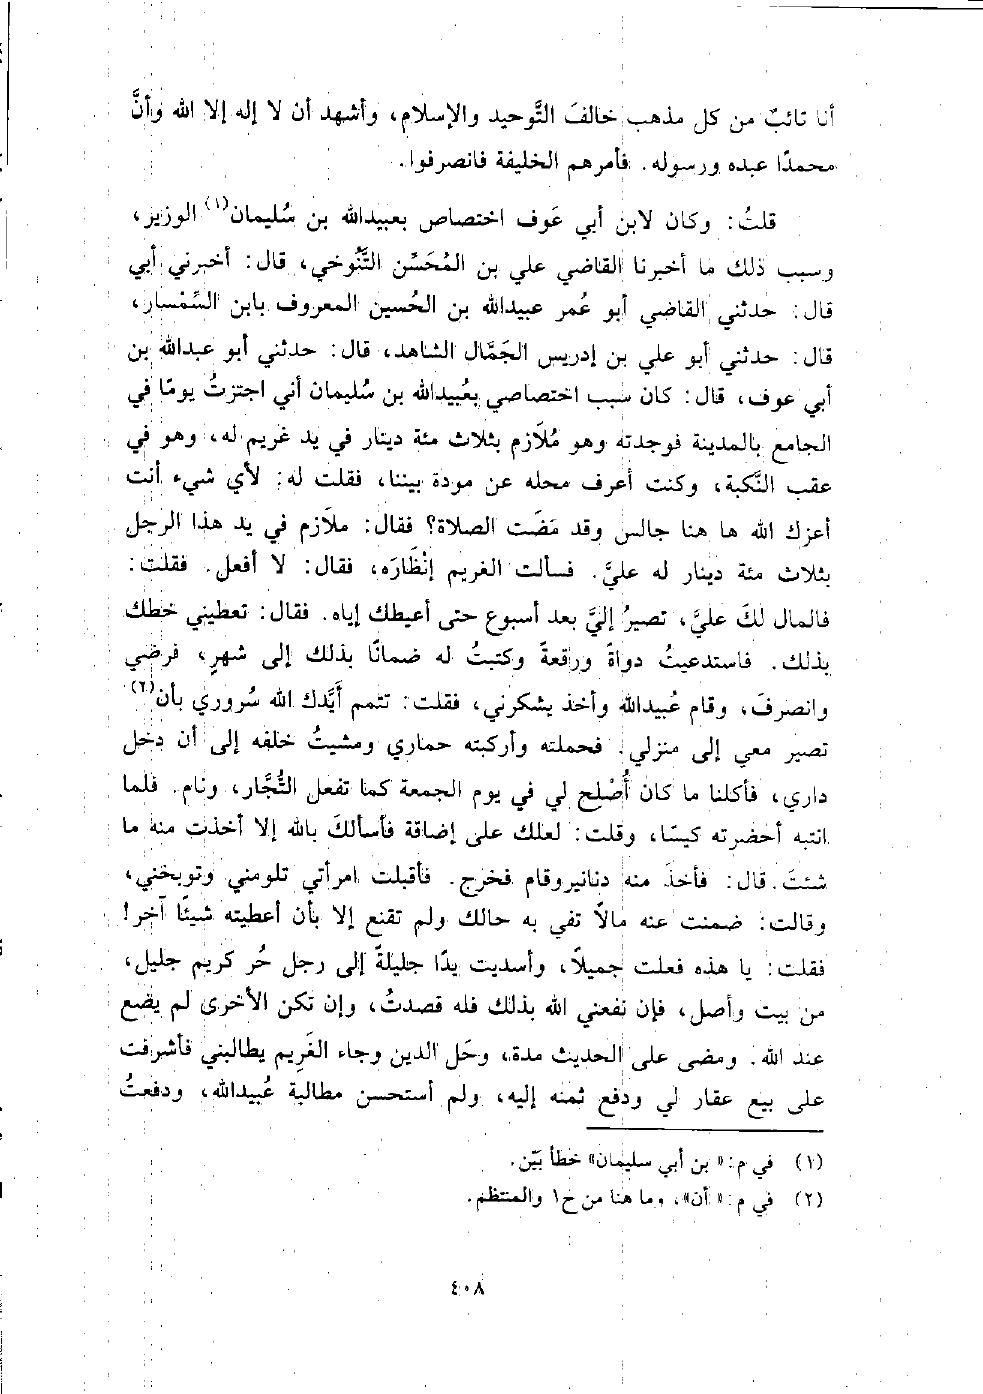 أنا تائبٌ من كل مذهب خالفَ التَّوحيد والإسلام، وأشهد أن لا إله إلا الله وأنَّ
محمدًا عبده ورسوله. فأمرهم الخليفة فانصرفوا.
قلتُ: وكان لابن أبي عَوف اختصاص بعبيدالله بن سُليمان(١) الوزير،
وسبب ذلك ما أخبرنا القاضي علي بن المُحَسِّن التَّنُوخي، قال: أخبرني أبي
قال: حدثني القاضي أبو عُمر عبيدالله بن الحُسين المعروف بابن السِّمْسار،
قال: حدثني أبو علي بن إدريس الجَمَّال الشاهد، قال: حدثني أبو عبدالله بن
أبي عوف، قال: كان سبب اختصاصي بعُبيدالله بن سُليمان أني اجتزتُ يومًا في
الجامع بالمدينة فوجدته وهو مُلَازم بثلاث مئة دينار في يد غريم له، وهو في
عقب النَّكبة، وكنت أعرف محله عن مودة بيننا، فقلت له: لأي شيء أنت
أعزك الله ها هنا جالس وقد مَضَت الصلاة؟ فقال: ملَازم في يد هذا الرجل
بثلاث مئة دينار له عليَّ. فسألت الغريم إنْظَارَه، فقال: لا أفعل. فقلت:
فالمال لكَ عليَّ، تصيرُ إليَّ بعد أسبوع حتى أعيطك إياه. فقال: تعطيني خطك
بذلك. فاستدعيتُ دواةً ورقعةً وكتبتُ له ضمانًا بذلك إلى شهرٍ، فرضي
وانصرفَ، وقام عُبيدالله وأخذ يشكرني، فقلت: تتمم أَيَّدك الله سُروري بأن(٢)
تصير معي إلى منزلي. فحملته وأركبته حماري ومشيتُ خلفه إلى أن دخل
داري، فأكلنا ما كان أُصْلح لي في يوم الجمعة كما تفعل التُّجَّار، ونام. فلما
انتبه أحضرته كيسًا، وقلت: لعلك على إضاقة فأسألكَ بالله إلا أخذت منه ما
شئتَ. قال: فأخذ منه دنانيروقام فخرج. فأقبلت امرأتي تلومني وتوبخني،
وقالت: ضمنت عنه مالاً تفي به حالك ولم تقنع إلا بأن أعطيته شيئًا آخر!
فقلت: يا هذه فعلت جميلاً، وأسديت يدًا جليلةً إلى رجل حُر كريم جليل،
من بيت وأصل، فإن نفعني الله بذلك فله قصدتُ، وإن تكن الأخرى لم يضع
عند الله. ومضى على الحديث مدة، وحَل الدين وجاء الغَرِيم يطالبني فأشرفت
على بيع عقار لي ودفع ثمنه إليه، ولم أستحسن مطالبة عُبيدالله، ودفعتُ
(١) في م: «بن أبي سليمان» خطأ بَيّن.
(٢) في م: «أن»، وما هنا من ح١ والمنتظم.
٤٠٨